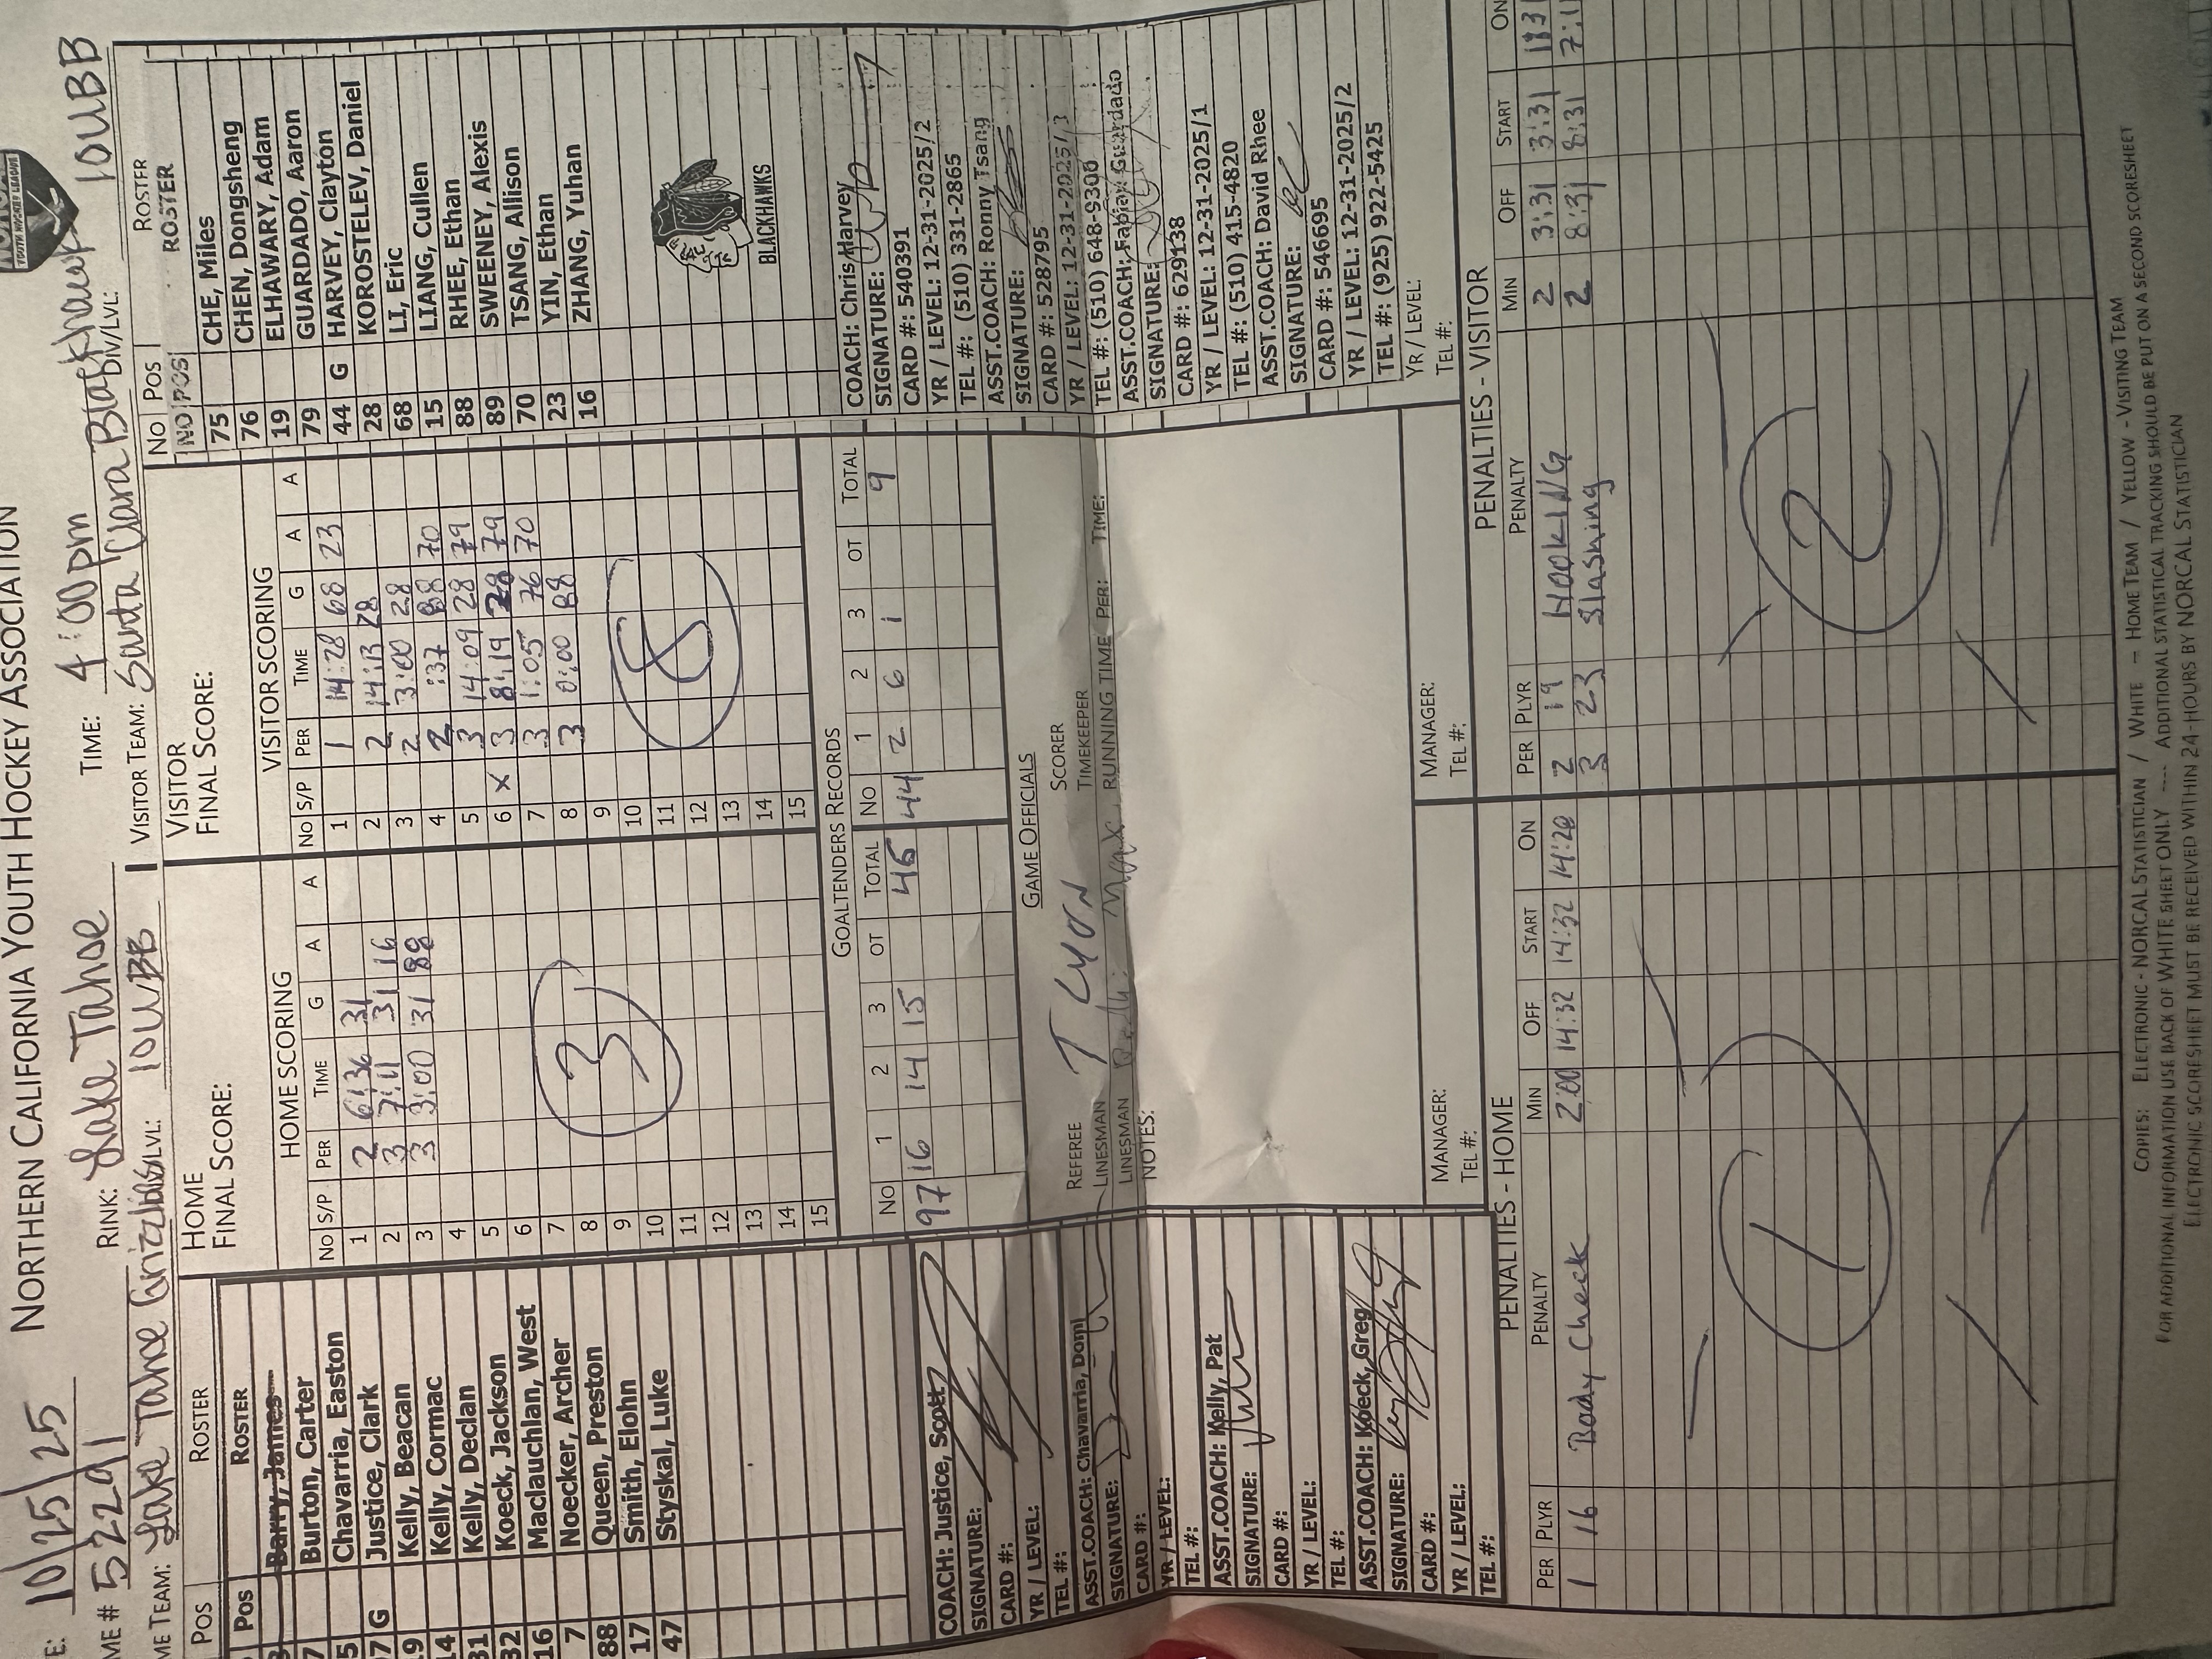 NORTHERN CALIFORNIA YOUTH HOCKEY ASSOCIATION
YOUTH HOCKEY LEAGUE
E: 10/25/25
RINK: Lake Tahoe
TIME: 4:00pm
ME # 52291
ME TEAM: Lake Tahoe Grizzlies
LVL: 10UBB
VISITOR TEAM: Santa Clara Blackhawks
DIV/LVL: 10UBB
POS ROSTER
Pos ROSTER
Barry, James
7 Burton, Carter
5 Chavarria, Easton
97 G Justice, Clark
19 Kelly, Beacan
14 Kelly, Cormac
31 Kelly, Declan
32 Koeck, Jackson
16 Maclauchlan, West
7 Noecker, Archer
88 Queen, Preston
17 Smith, Elohn
47 Styskal, Luke
COACH: Justice, Scott
SIGNATURE:
CARD #:
YR / LEVEL:
TEL #:
ASST.COACH: Chavarria, Domi
SIGNATURE:
CARD #:
YR / LEVEL:
TEL #:
ASST.COACH: Kelly, Pat
SIGNATURE:
CARD #:
YR / LEVEL:
TEL #:
ASST.COACH: Koeck, Greg
SIGNATURE:
CARD #:
YR / LEVEL:
TEL #:
HOME
FINAL SCORE:
HOME SCORING
No S/P PER TIME G A A
1 2 6:36 31
2 3 7:11 31 16
3 3 3:00 31 88
4
5
6
7
8
9
10
11
12
13
14
15
3
VISITOR
FINAL SCORE:
VISITOR SCORING
No S/P PER TIME G A A
1 1 14:28 68 23
2 2 14:13 28
3 2 3:00 28
4 2 :37 88 70
5 3 14:09 28 79
6 X 3 8:19 28 79
7 3 1:05 76 70
8 3 0:00 88
9
10
11
12
13
14
15
8
GOALTENDERS RECORDS
No 1 2 3 OT TOTAL
97 16 14 15 45
No 1 2 3 OT TOTAL
44 2 6 1 9
GAME OFFICIALS
REFEREE T Lyon
SCORER
LINESMAN
TIMEKEEPER
LINESMAN
RUNNING TIME PER: TIME:
NOTES:
MANAGER:
TEL #:
MANAGER:
TEL #:
No POS ROSTER
NO POS ROSTER
75 CHE, Miles
76 CHEN, Dongsheng
19 ELHAWARY, Adam
79 GUARDADO, Aaron
44 G HARVEY, Clayton
28 KOROSTELEV, Daniel
68 LI, Eric
15 LIANG, Cullen
88 RHEE, Ethan
89 SWEENEY, Alexis
70 TSANG, Allison
23 YIN, Ethan
16 ZHANG, Yuhan
BLACKHAWKS
COACH: Chris Harvey
SIGNATURE:
CARD #: 540391
YR / LEVEL: 12-31-2025/2
TEL #: (510) 331-2865
ASST.COACH: Ronny Tsang
SIGNATURE:
CARD #: 528795
YR / LEVEL: 12-31-2025/3
TEL #: (510) 648-9300
ASST.COACH: Fabian Guardado
SIGNATURE:
CARD #: 629138
YR / LEVEL: 12-31-2025/1
TEL #: (510) 415-4820
ASST.COACH: David Rhee
SIGNATURE:
CARD #: 546695
YR / LEVEL: 12-31-2025/2
TEL #: (925) 922-5425
YR / LEVEL:
TEL #:
PENALTIES - HOME
PER PLYR PENALTY MIN OFF START ON
1 16 Body Check 2:00 14:32 14:32 14:28
1
PENALTIES - VISITOR
PER PLYR PENALTY MIN OFF START ON
2 19 HOOKING 2 3:31 3:31 1:31
3 23 Slashing 2 8:31 8:31 7:1
2
COPIES: ELECTRONIC - NORCAL STATISTICIAN / WHITE - HOME TEAM / YELLOW - VISITING TEAM
FOR ADDITIONAL INFORMATION USE BACK OF WHITE SHEET ONLY --- ADDITIONAL STATISTICAL TRACKING SHOULD BE PUT ON A SECOND SCORESHEET
ELECTRONIC SCORESHEET MUST BE RECEIVED WITHIN 24-HOURS BY NORCAL STATISTICIAN